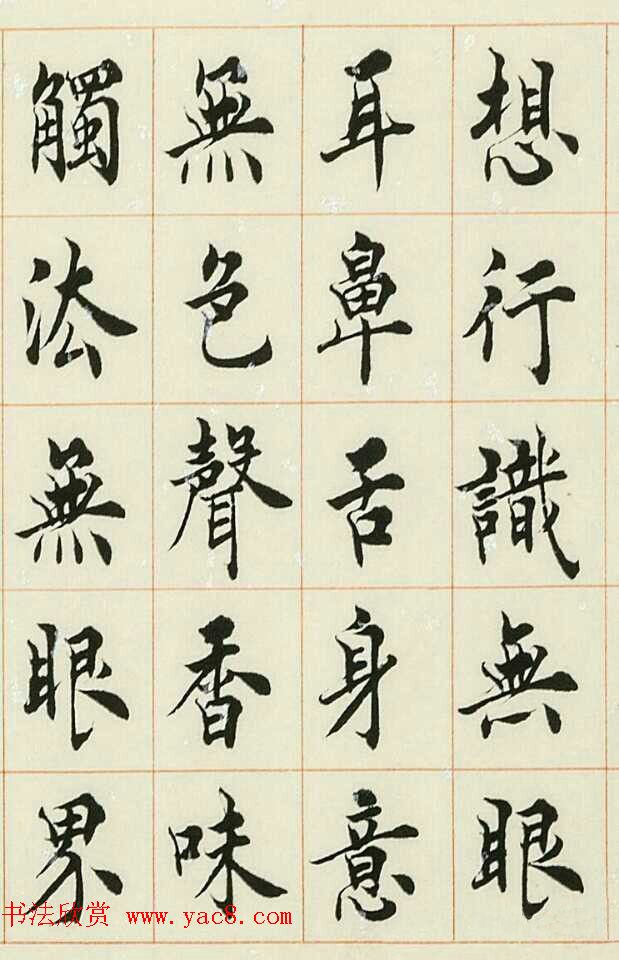 想行識無眼
耳鼻舌身意
無色聲香味
觸法無眼界
书法欣赏 www.yac8.com